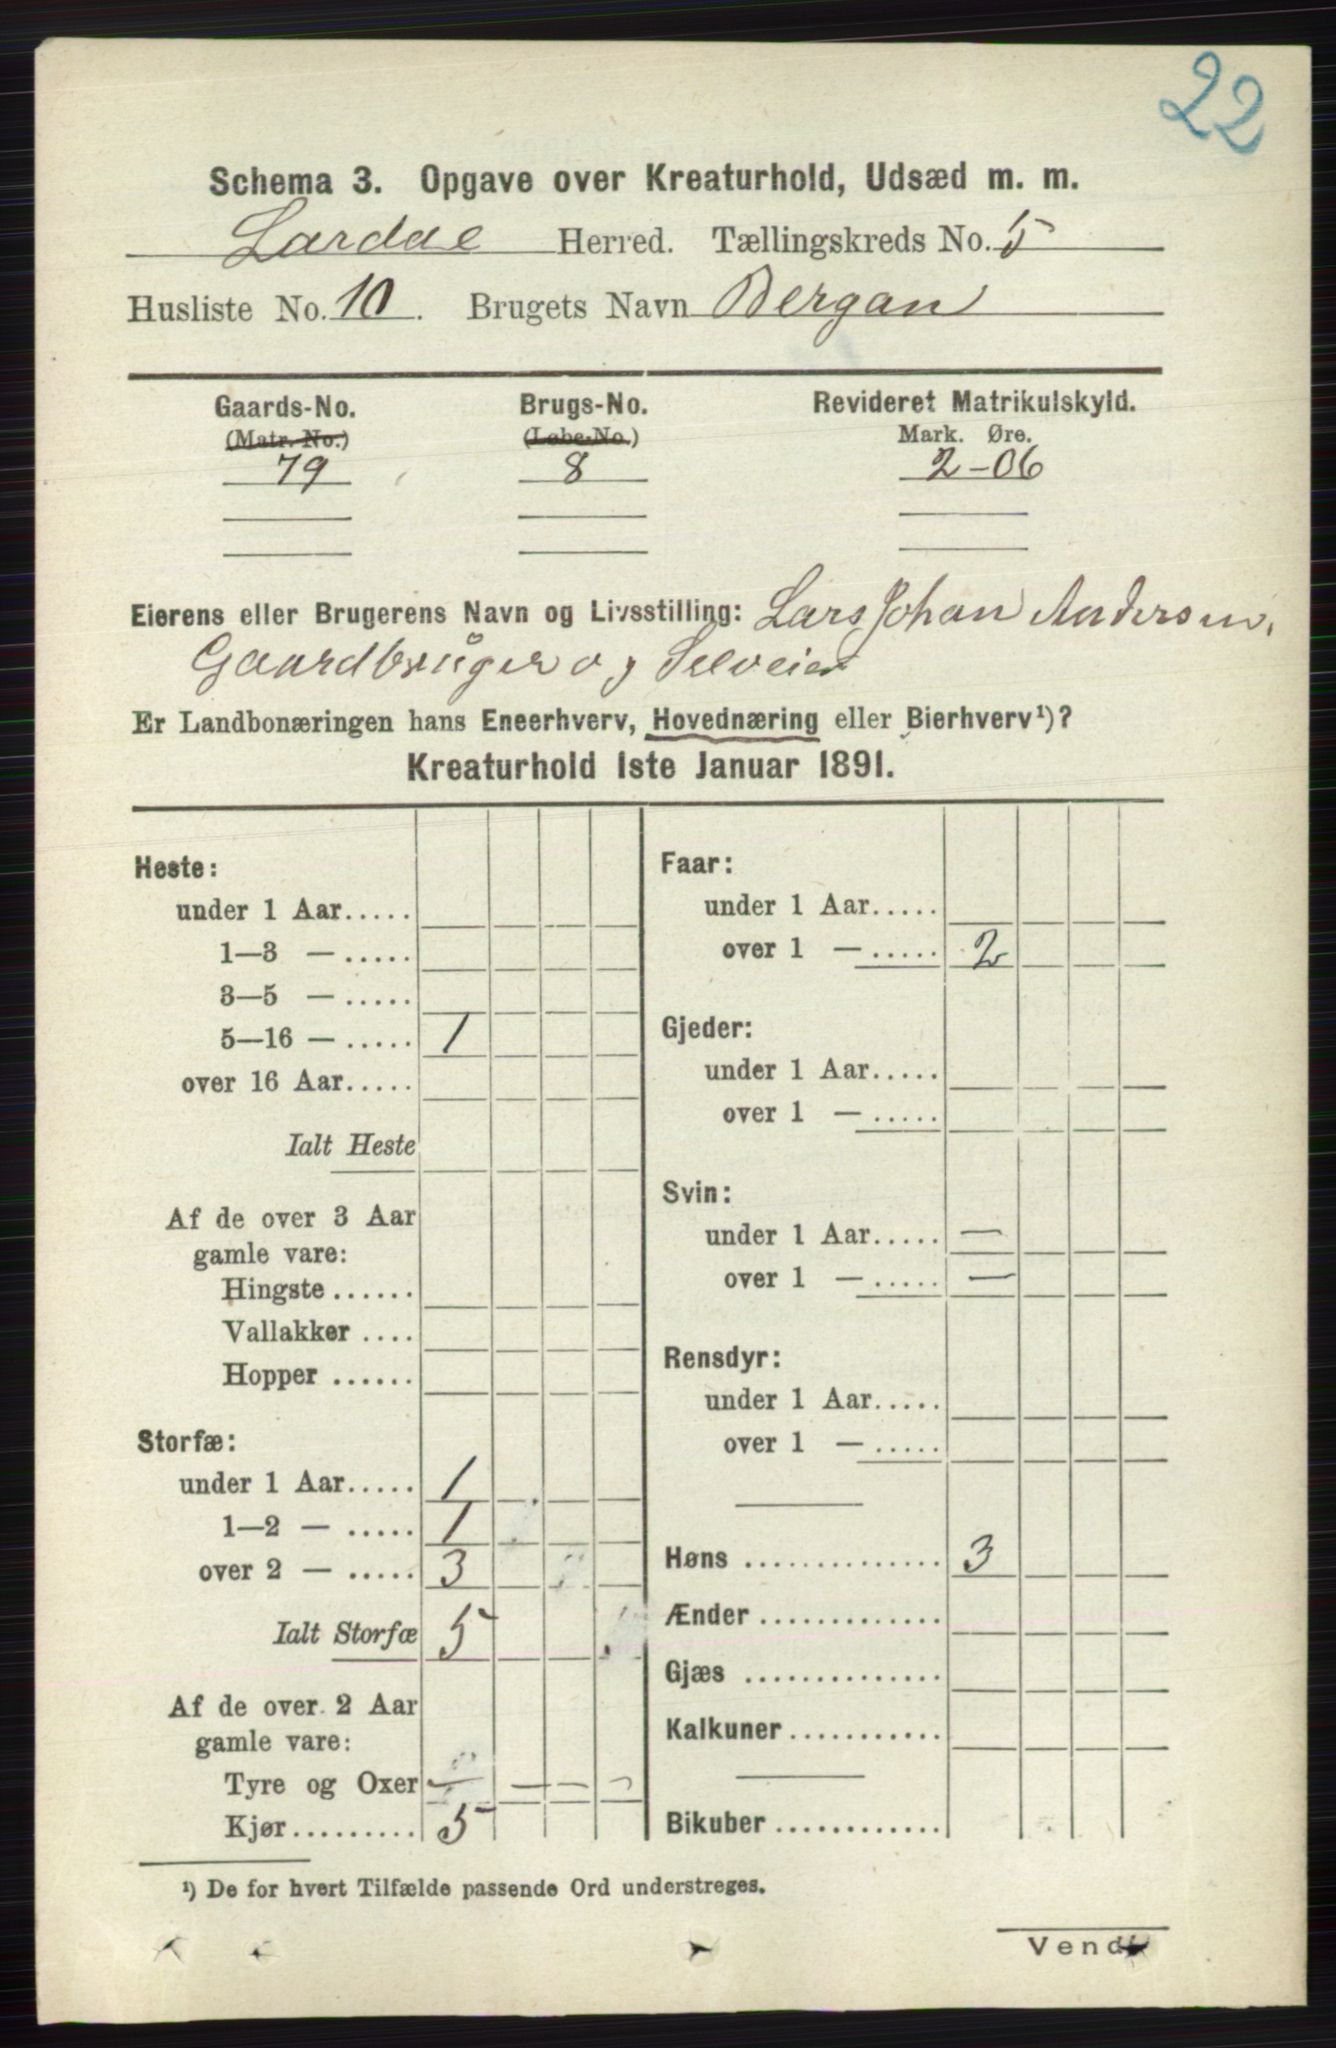 22
Schema 3. Opgave over Kreaturhold, Udsæd m. m.
Lardal Herred. Tællingskreds No. 5
Husliste No. 10. Brugets Navn Bergan
Gaards-No. Brugs-No. Revideret Matrikulskyld.
(Matr. No.) (Løbe-No.) Mark. Øre.
79 8 2-06
Eierens eller Brugerens Navn og Livsstilling: Lars Johan Andersen,
Gaardbruger og Selveier
Er Landbonæringen hans Eneerhverv, Hovednæring eller Bierhverv¹)?
Kreaturhold 1ste Januar 1891.
Heste:
under 1 Aar.....
1—3 — .....
3—5 — .....
5—16 — ..... 1
over 16 Aar.....
Ialt Heste
Af de over 3 Aar
gamle vare:
Hingste ......
Vallakker ....
Hopper ......
Storfæ:
under 1 Aar..... 1
1—2 — ..... 1
over 2 — ..... 3
Ialt Storfæ 5
Af de over 2 Aar
gamle vare:
Tyre og Oxer — — — —
Kjør......... 5
Faar:
under 1 Aar.....
over 1 — ..... 2
Gjeder:
under 1 Aar.....
over 1 — .....
Svin:
under 1 Aar..... —
over 1 — ..... —
Rensdyr:
under 1 Aar.....
over 1 — .....
Høns .............. 3
Ænder .............
Gjæs ..............
Kalkuner...........
Bikuber............
¹) De for hvert Tilfælde passende Ord understreges.
Vend!